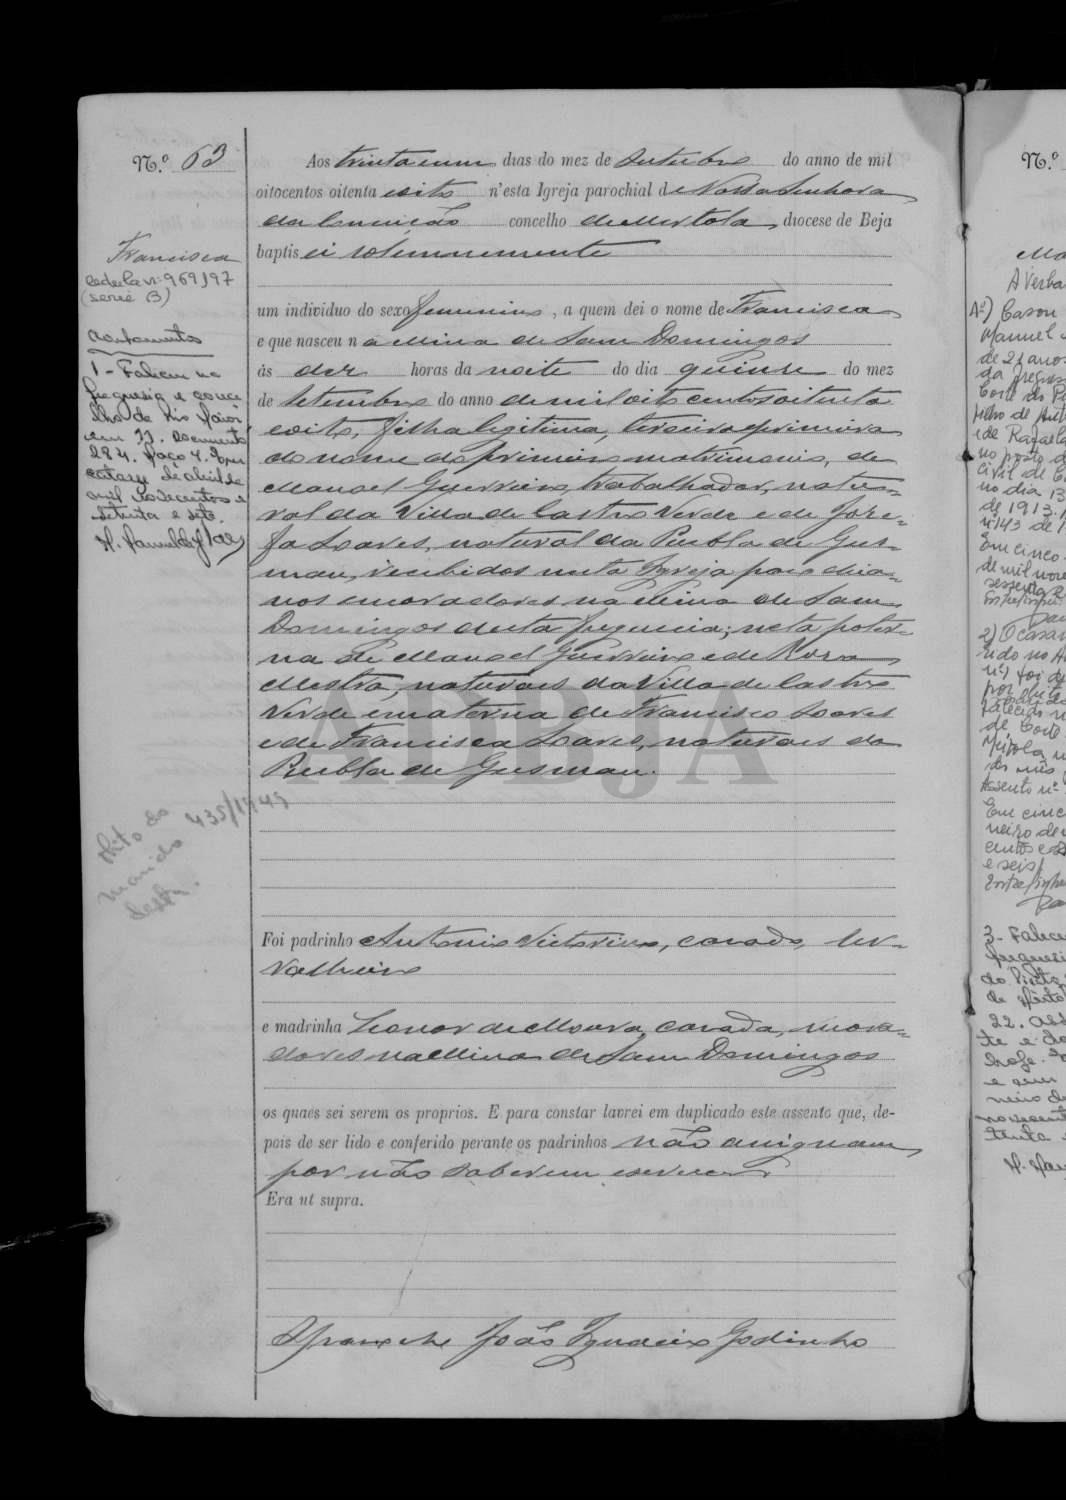 N.º 63
Aos trinta e um dias do mez de Outubro do anno de mil
oitocentos oitenta e oito n'esta Igreja parochial de Nossa Senhora
da Conceição concelho de Mertola, diocese de Beja
baptisei solemnemente
um individuo do sexo femenino, a quem dei o nome de Francisca
e que nasceu na Mina de Sam Domingos
ás dez horas da noite do dia quinse do mez
de Setembro do anno de mil oitocentos oitenta
e oito, filha legitima, terceira e primeira
do nome do primeiro matrimonio, de
Manoel Guerreiro, trabalhador, natu-
ral da Villa de Castro Verde e de Joze-
fa Soares, natural da Puebla de Gus-
man, recebidos nesta Igreja parochia-
nos e moradores na Mina de Sam
Domingos desta freguesia; neta pater-
na de Manoel Guerreiro e de Rosa
Mestra, naturaes da Villa de Castro
Verde e materna de Francisco Soares
e de Francisca Soares, naturaes da
Puebla de Gusman.
Foi padrinho Antonio Victorino, casado, ser-
ralheiro
e madrinha Leonor de Moura, casada, mora-
dores na Mina de Sam Domingos
os quaes sei serem os proprios. E para constar lavrei em duplicado este assento que, de-
pois de ser lido e conferido perante os padrinhos não assignam
por não saberem escrever
Era ut supra.
João Ignacio Godinho
Francisca
cedula nº 969197
(serie B)
1- Faleceu na
freguesia e conce-
lho de Rio Maior
em 11. Documento
284. Maço 4. Em
catorze de abril de
mil novecentos e
setenta e sete.
Obito do
marido
desta.
435/1945
ADBJA
N.º
A Verba
1º) Casou
Manuel
de 21 anos
da fregues
Corte do Pi
filho de Ant
e de Rafaela
no posto d
Civil de C
no dia 13
de 1913.
nº 143 de 1
Em cinco
de mil nove
3- Falece
freguesi
22.